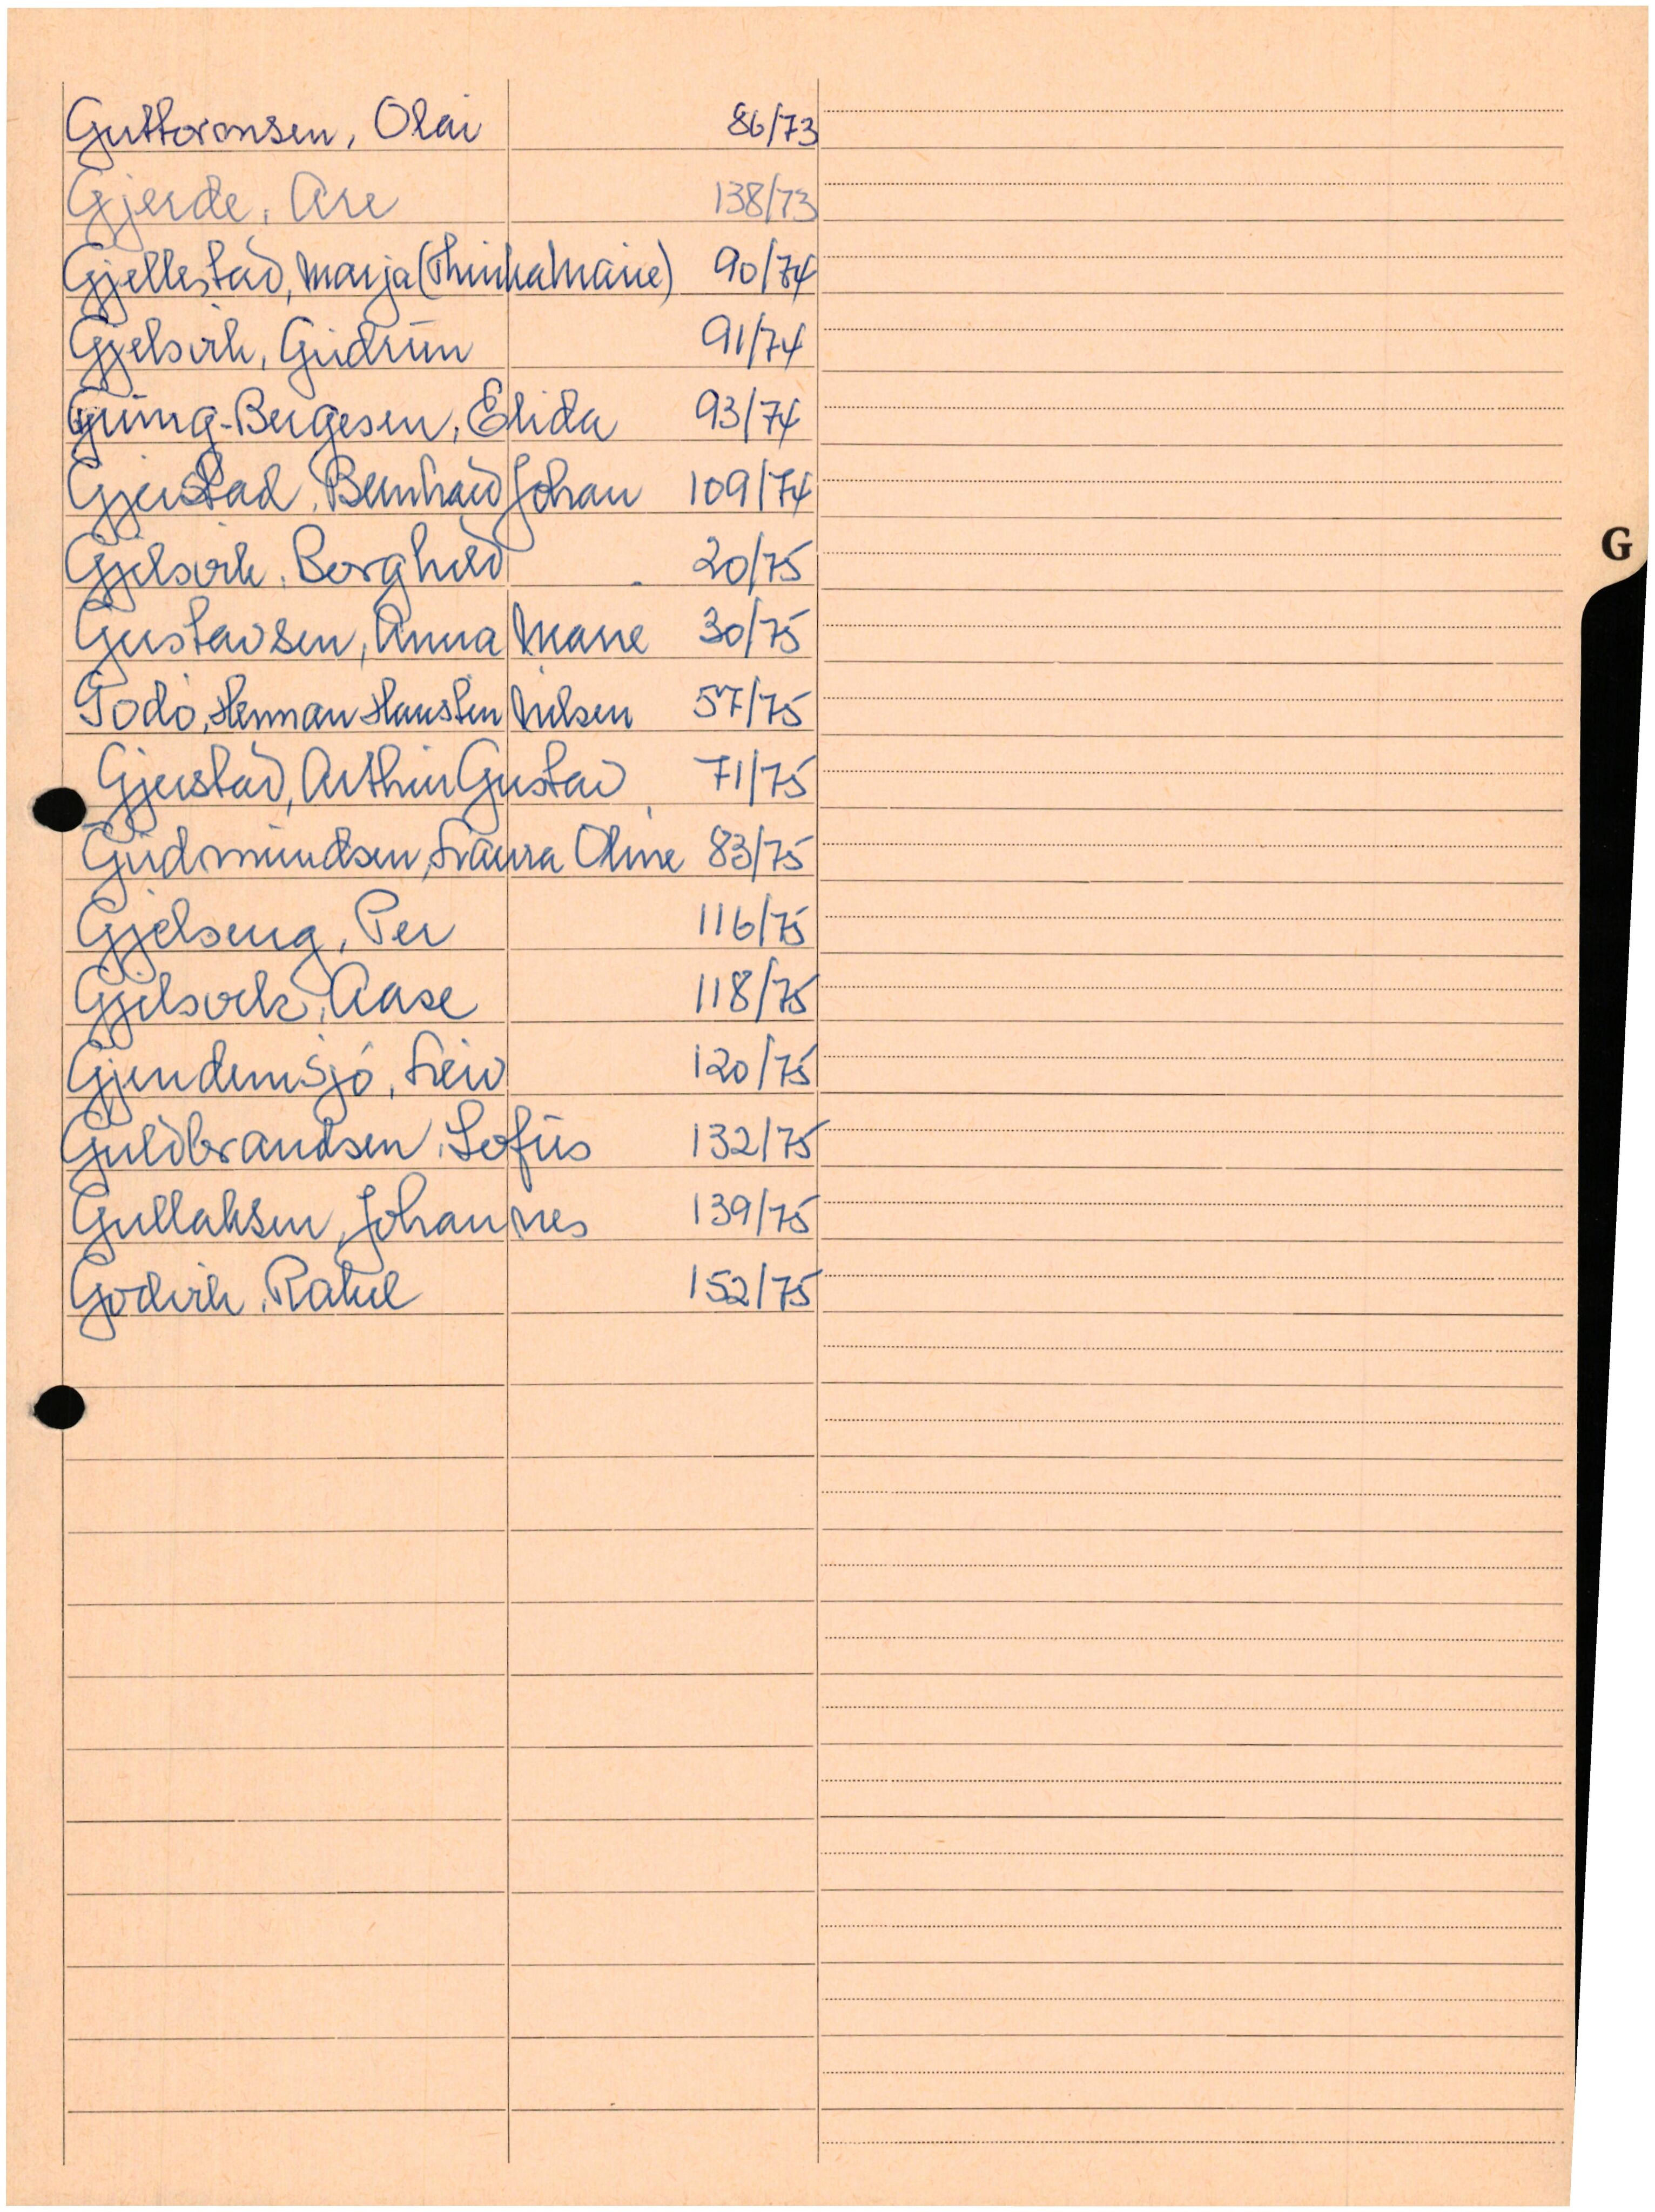 Guttormsen, Olai 86/73
Gjerde, Are 138/73
Gjellestad, Marja (Thinka Marie) 90/74
Gjelsvik, Gudrun 91/74
Gring-Bergesen, Elida 93/74
Gjerstad, Bernhard Johan 109/74
G
Gjelsvik, Borghild 20/75
Gustavsen, Anna Marie 30/75
Godø, Herman Hausten Nilsen 57/75
Gjerstad, Arthur Gustav 71/75
Gudmundsen, Laura Oline 83/75
Gjelseng, Per 116/75
Gjelsvik, Aase 118/75
Gjendemsjø, Leiv 120/75
Guldbrandsen, Sofus 132/75
Gullaksen, Johannes 139/75
Godvik, Rakel 152/75